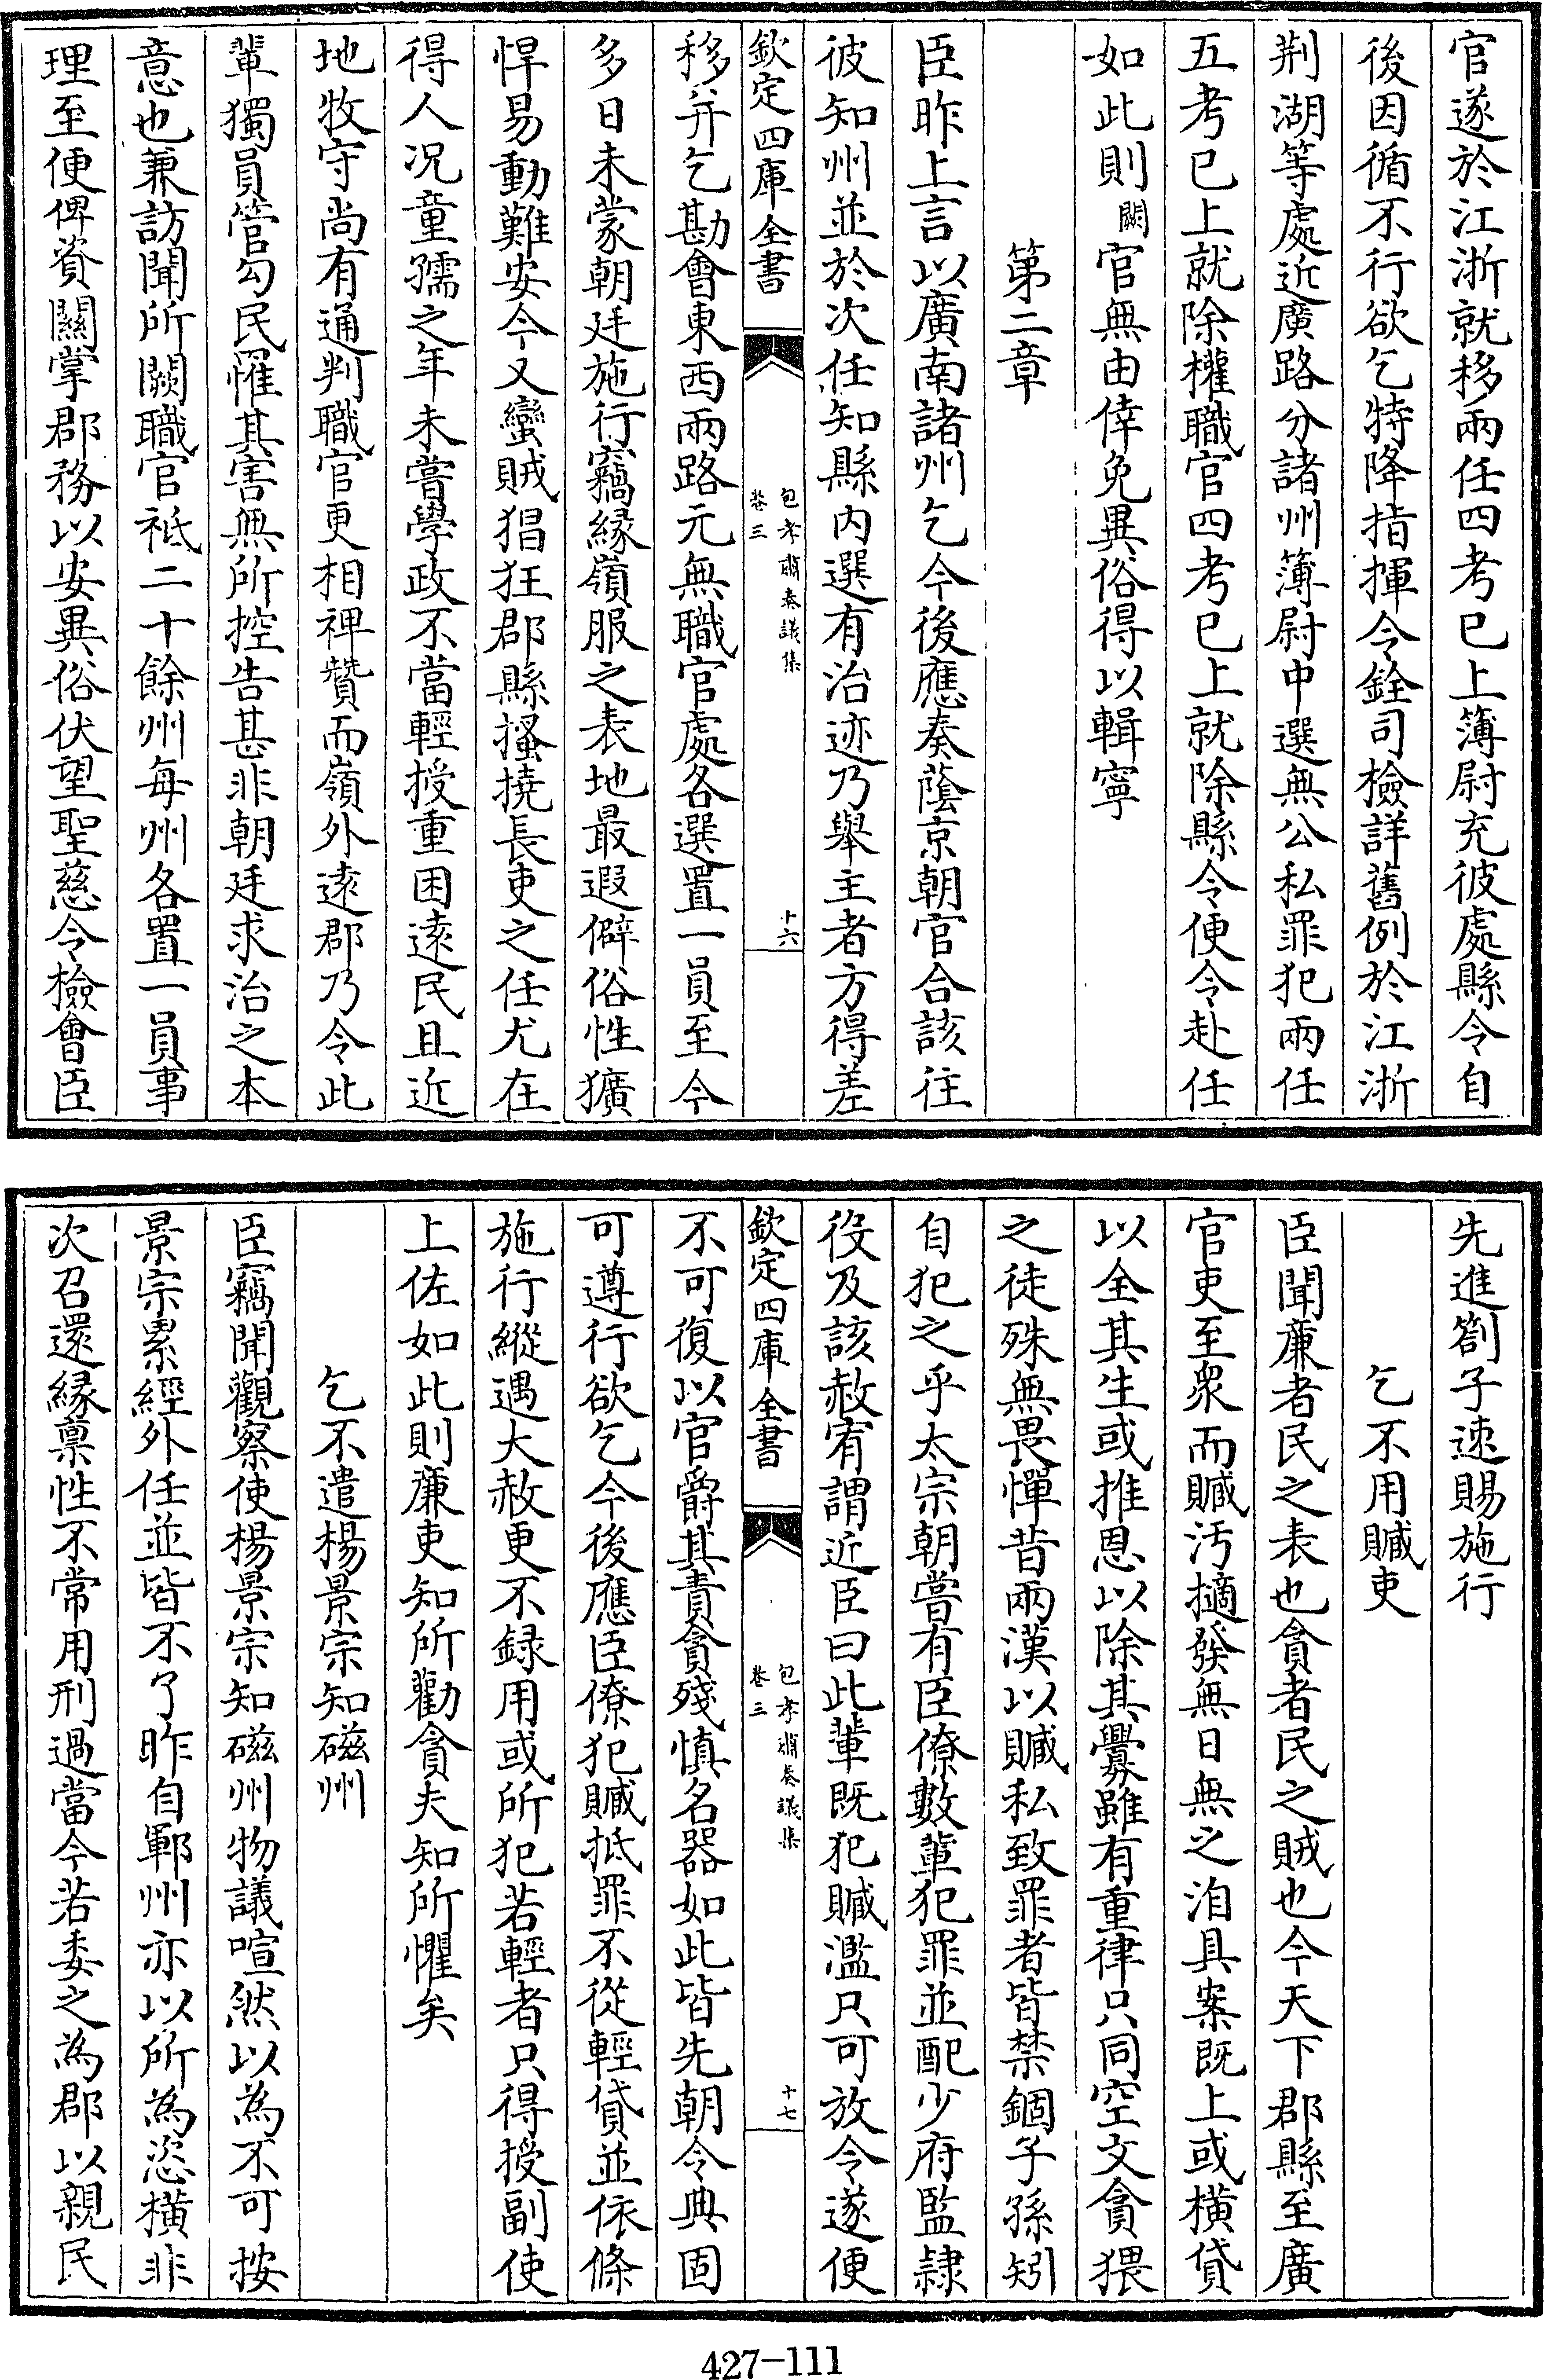 官遂於江浙就移兩任四考已上簿尉充彼處縣令自
後因循不行欲乞特降指揮令銓司檢詳舊例於江浙
荆湖等處近廣路分諸州簿尉中選無公私罪犯兩任
五考已上就除權職官四考已上就除縣令便令赴任
如此則闕官無由倖免異俗得以輯寧
第二章
臣昨上言以廣南諸州乞今後應奏蔭京朝官合該往
彼知州並於次任知縣内選有治迹乃舉主者方得差
欽定四庫全書
包孝肅奏議集
卷三
十六
移并乞勘會東西兩路元無職官處各選置一員至今
多日未蒙朝廷施行竊緣嶺服之表地最遐僻俗性獷
悍易動難安今又蠻賊猖狂郡縣搔撓長吏之任尤在
得人况童孺之年未嘗學政不當輕授重困遠民且近
地牧守尚有通判職官更相裨贊而嶺外遠郡乃令此
輩獨員管勾民罹其害無所控告甚非朝廷求治之本
意也兼訪聞所闕職官祗二十餘州每州各置一員事
理至便俾資關掌郡務以安異俗伏望聖慈令檢會臣
先進劄子速賜施行
乞不用贓吏
臣聞廉者民之表也貪者民之賊也今天下郡縣至廣
官吏至衆而贓汚擿發無日無之洎具案既上或横貸
以全其生或推恩以除其釁雖有重律只同空文貪猥
之徒殊無畏憚昔兩漢以贓私致罪者皆禁錮子孫矧
自犯之乎太宗朝嘗有臣僚數輩犯罪並配少府監隸
役及該赦宥謂近臣曰此輩既犯贓濫只可放令遂便
欽定四庫全書
包孝肅奏議集
卷三
十七
不可復以官爵其責貪殘慎名器如此皆先朝令典固
可遵行欲乞今後應臣僚犯贓抵罪不從輕貸並依條
施行縱遇大赦更不録用或所犯若輕者只得授副使
上佐如此則廉吏知所勸貪夫知所懼矣
乞不遣楊景宗知磁州
臣竊聞觀察使楊景宗知磁州物議喧然以為不可按
景宗累經外任並皆不了昨自鄆州亦以所為恣横非
次召還緣禀性不常用刑過當今若委之為郡以親民
427-111